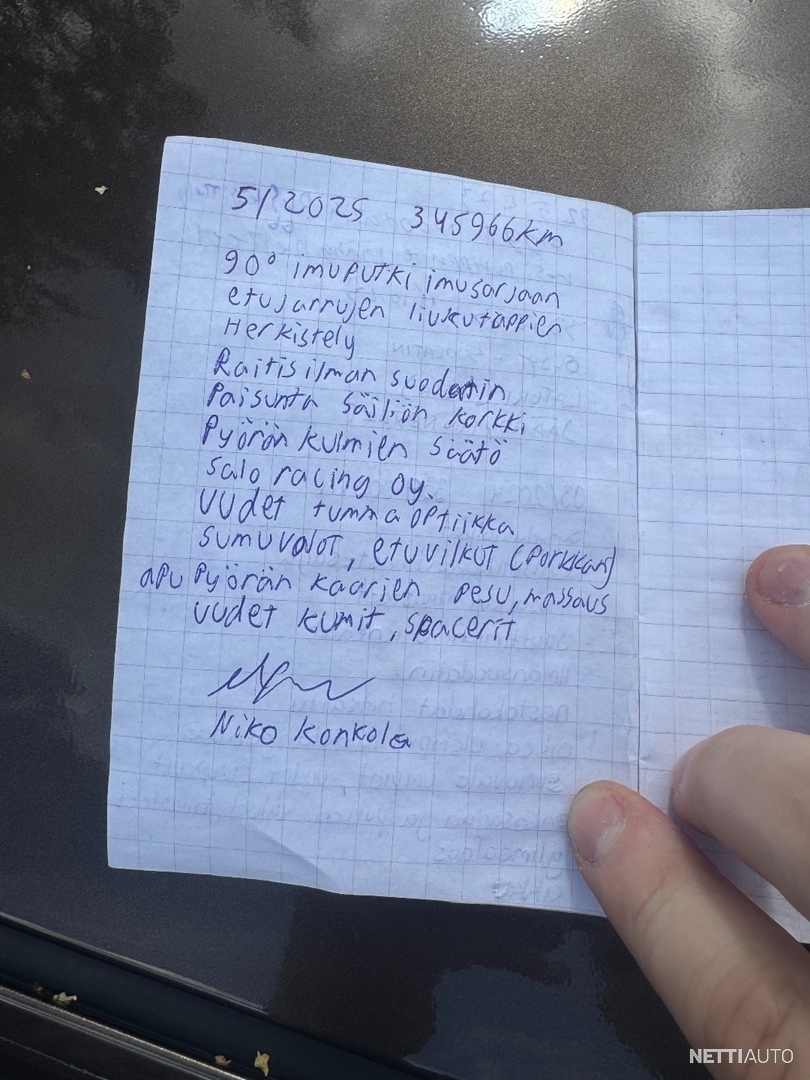 5/2025 345966km
90° imuputki imusarjaan
etujarrujen liukutappien
Herkistely
Raitisilman suodatin
Paisunta säiliön korkki
Pyörän kulmien säätö
Salo racing oy.
Uudet tummaoptiikka
sumuvalot, etuvilkut (Porkkan)
apu Pyörän kaarien pesu, massaus
uudet kumit, spacerit
Niko Konkola
NETTIAUTO